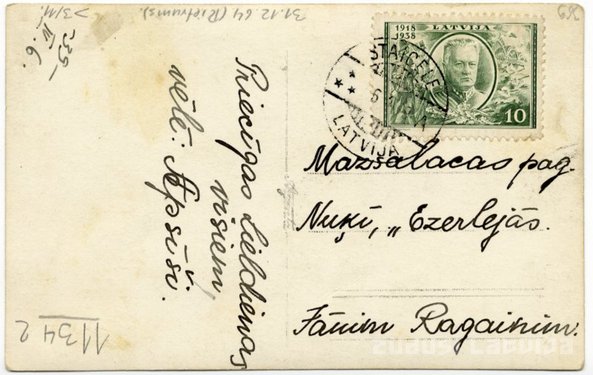 31.12.64 (Rietrums)
1918 LATVIJA
1938
10
STAICELE
LATVIJA
Priecīgas Lieldienas
visiem
vēlē: Apsīši.
Mazsalacas pag.
Nuķi, „Ezerlejās.
Jānim Ragainim.
11342
ZUDUSI LATVIJA